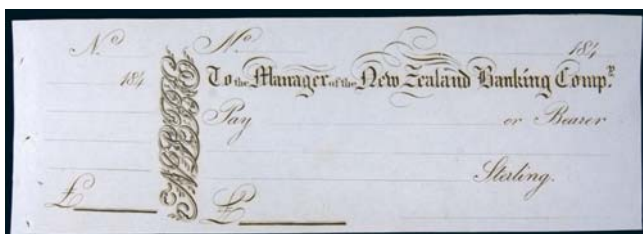 No
184
£
No 184
To the Manager of the New Zealand Banking Comp.y
Pay or Bearer
Sterling.
£